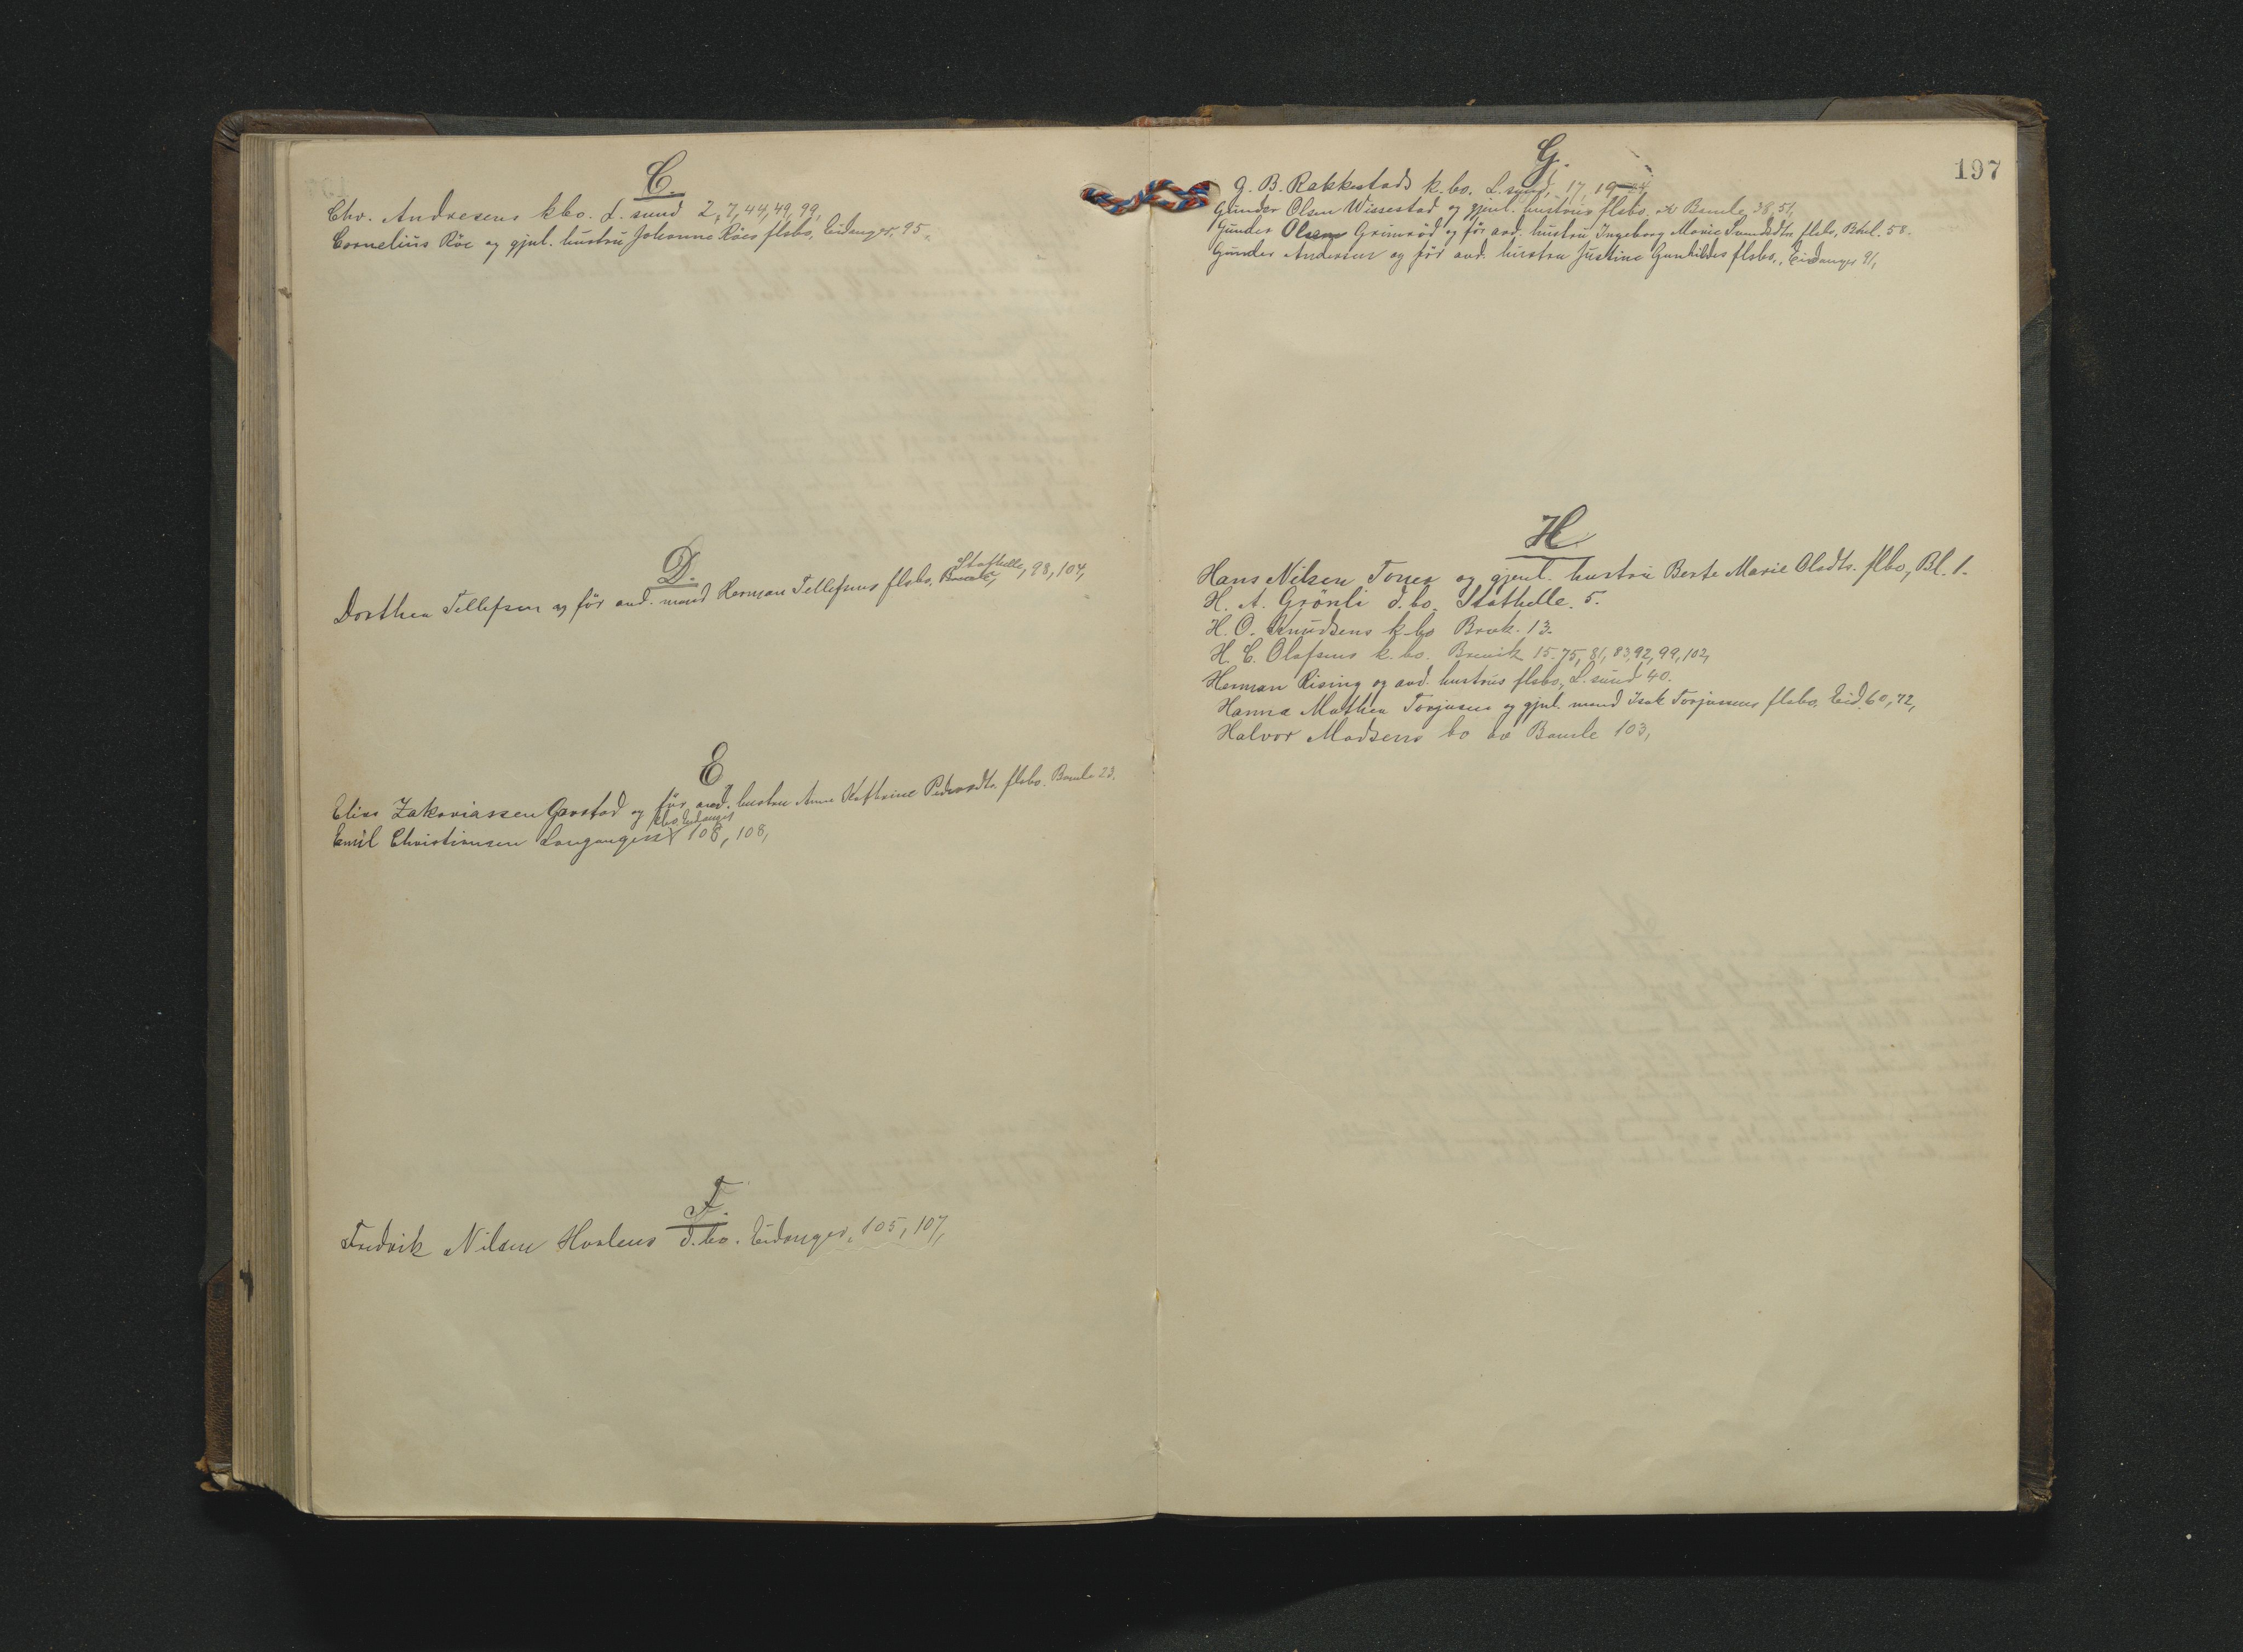 C.
Chr. Andresens kbo. L. sund 2, 7, 44, 49, 99,
Cornelius Röe og gjnl. hustru Johanne Röes flsbo, Eidanger, 95,
D.
Stathelle,
Dorthea Tellefsen og før avd. mand Herman Tellefsens flsbo. 98, 104,
E
Elias Zakariassen Grostad og før avd. hustru Anne Kathrine Pedersdtr. flsbo. Bamle 23.
kbo Eidanger
Emil Christiansen Langangen 108, 108,
F.
Fredrik Nilsen Hvalens d.bo. Eidanger, 105, 107,
197
G.
G. B. Rakkestads k. bo. L. sund, 17, 19-24,
Gunder Olsen Wissestad og gjenl. hustrus flsbo. av Bamle 38, 51,
Gunder Olsen Grimröd og før avd. hustru Ingeborg Marie flsbo, 58.
Gunder Andersen og før avd. hustru Justine Gunhildes flsbo., Eidanger 91,
H
Hans Nilsen Tones og gjenl. hustru Berte Marie Olsdtr. flbo, Bl. 1.
H. A. Grönli d.bo. Stathelle. 5.
H. O. Knudsens k.bo Brvk. 13.
H. C. Olafsens k. bo. Brevik 15. 75, 81, 83, 92, 99, 102,
Herman Rising og avd. hustrus flsbo., L. sund 40.
Hanna Mathea Torjusen og gjnl. mand Isak Torjussens flsbo. Eid. 60, 72,
Halvor Madsens bo av Bamle 103,